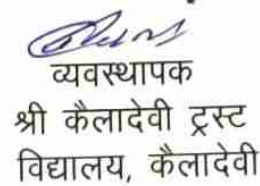 व्यवस्थापक
श्री कैलादेवी ट्रस्ट
विद्यालय, कैलादेवी